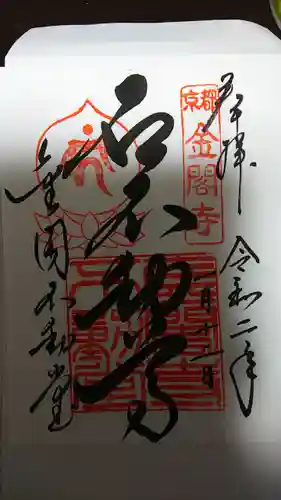 奉拝 令和二年
二月十二日
京都
金閣寺
石不動尊
金閣不動堂